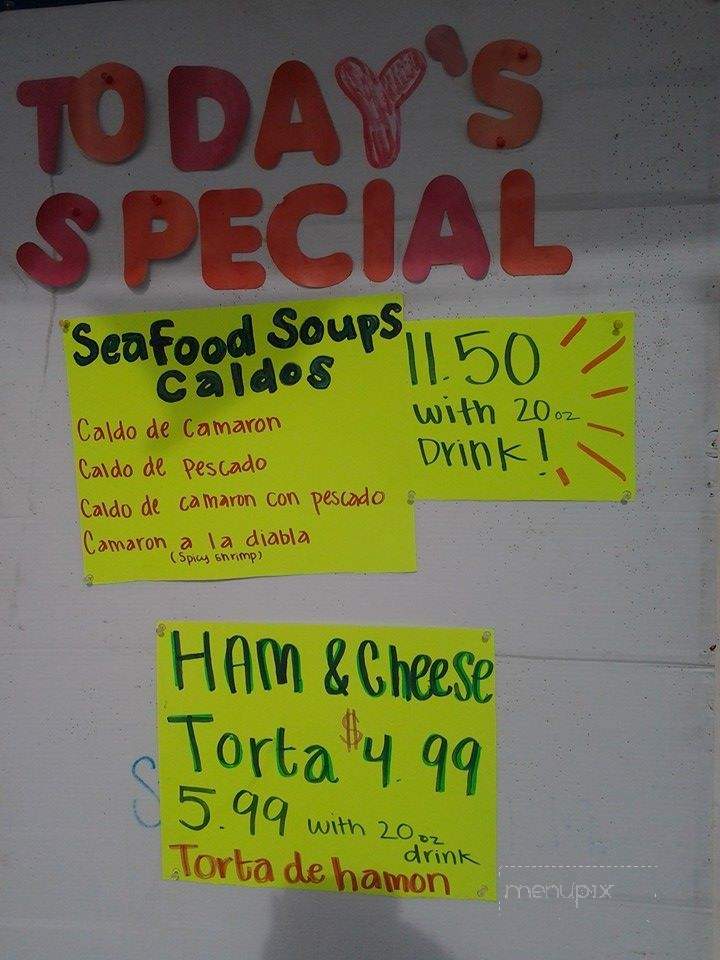 TODAY'S
SPECIAL
Seafood Soups
Caldos
Caldo de camaron
Caldo de pescado
Caldo de camaron con pescado
Camaron a la diabla
(Spicy shrimp)
11.50
with 20oz
Drink!
HAM & Cheese
Torta $4.99
5.99 with 20oz
drink
Torta de hamon
S
menupix